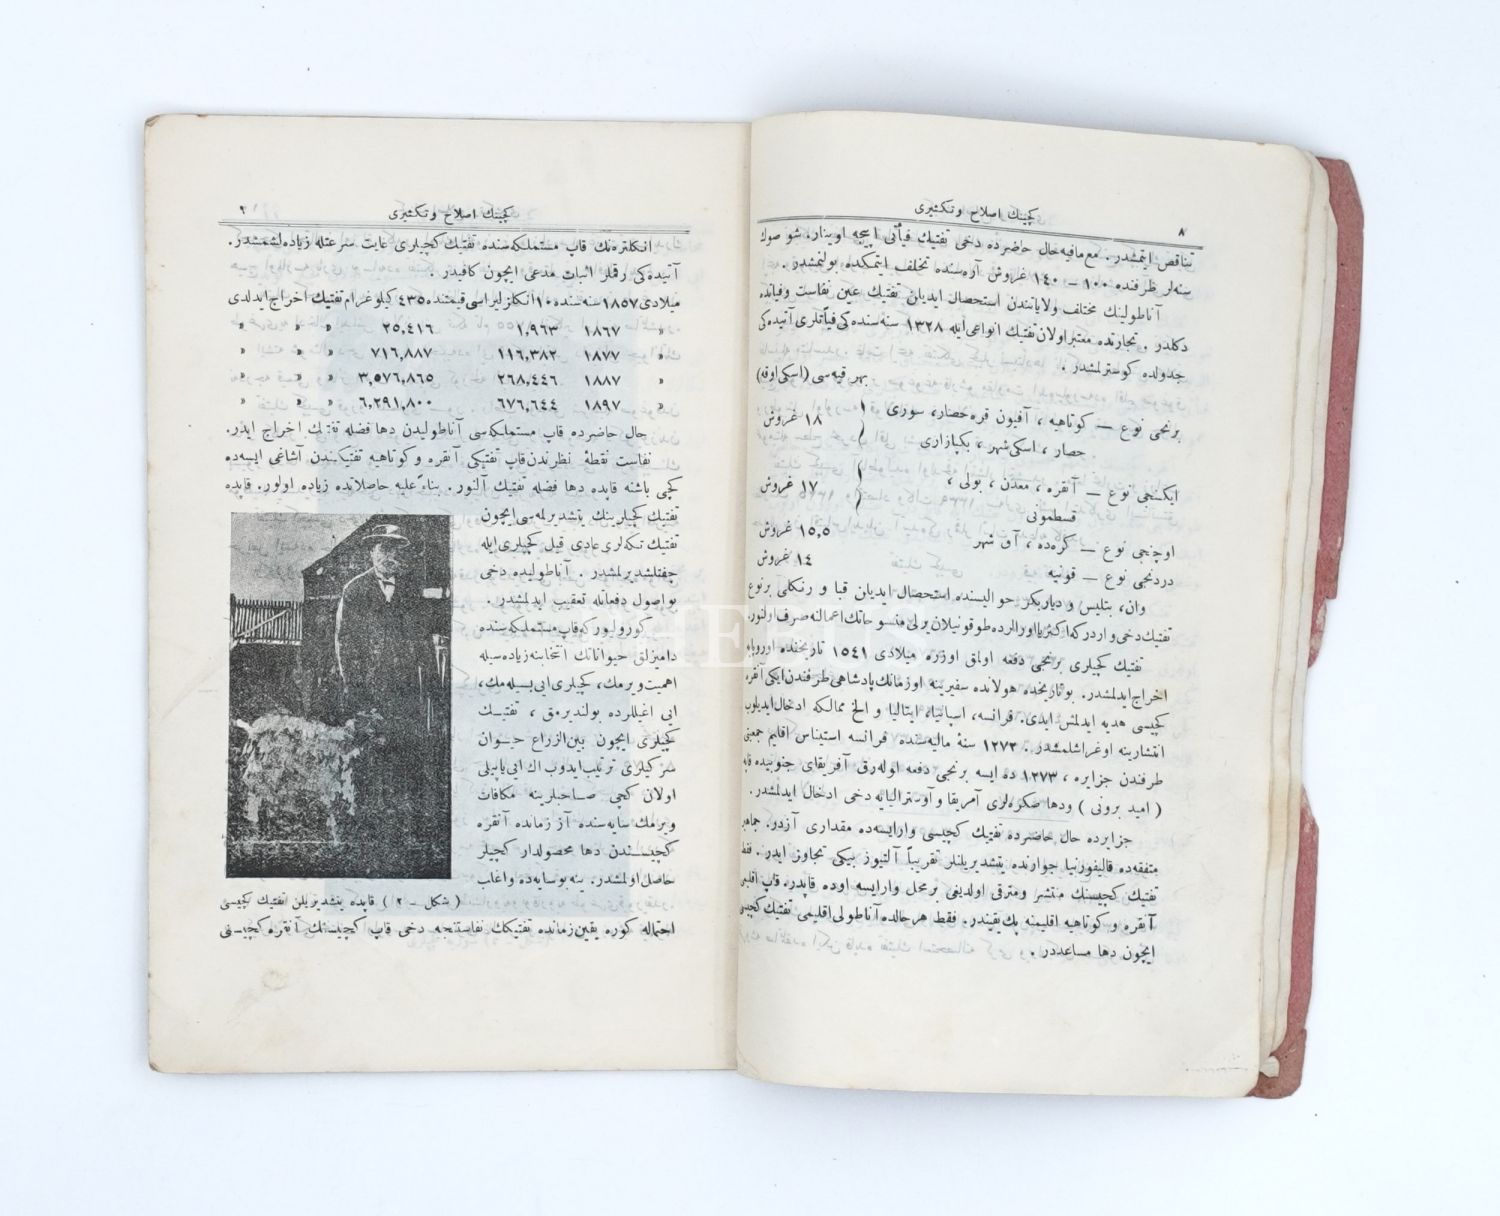 كچينك اصلاح وتكثيرى
٨
تناقص ايتمشدر. مع مافيه حال حاضرده دخى تفتيك فيأتى ايجه اوينار. شو صوك
سنه‌لر ظرفنده ١٠٠ – ١٤٠ غروش آره‌سنده تخلف ايتمكده بولنمشدر .
آناطولينك مختلف ولاياتندن استحصال ايديلن تفتيك عين نفاست وفيأتده
دكلدر . تجارتده معتبر اولان تفتيك انواعى ايله ١٣٢٨ سنه‌سنده كى فيأتلرى آتيده كى
جدولده كوسترلمشدر .
بهر قيه‌سى (اسكى اوقه)
برنجى نوع — كوتاهيه ، آفيون قره حصار، سورى
حصار ، اسكى شهر ، بكپازارى
١٨ غروش
ايكنجى نوع — آنقره ، معدن ، بولى ،
قسطمونى
١٧ غروش
اوچنجى نوع — كرده ، آق شهر
١٥,٥ غروش
دردنجى نوع — قونيه
١٤ غروش
وان، بتليس و دياربكر حواليسنده استحصال ايديلن قبا و رنكلى برنوع
تفتيك دخى واردر كه اكثريا اورالرده طوقونيلان يرلى منسوجاتك اعمالنه صرف اولنور.
تفتيك كچيلرى برنجى دفعه اولمق اوزره ميلادى ١٥٤١ تاريخنده اوروپايه
اخراج ايدلمشدر. بو تاريخده هولانده سفيرينه او زمانك پادشاهى طرفندن ايكى آنقره
كچيسى هديه ايدلمش ايدى. فرانسه، اسپانيا، ايتاليا و الخ ممالكه ادخال ايديلوب
انتشارينه اوغراشلمشدر . ١٢٧٢ سنهٔ ماليه‌سنده فرانسه استيناس اقليم جمعيتى
طرفندن جزايره ، ١٢٧٣ ده ايسه برنجى دفعه اوله‌رق آفريقاى جنوبيده قاپه
( اميد برونى ) ودها صكره‌لرى آمريقا و آوستراليايه دخى ادخال ايدلمشدر.
جزايرده حال حاضرده تفتيك كچيسى وارايسه‌ده مقدارى آزدر. جماهير
متفقه‌ده قاليفورنيا جوارنده يتشديريلنلر تقريباً آلتيوز بيكى تجاوز ايدر . فقط
تفتيك كچيسنك منتشر ومترقى اولديغى بر محل وارايسه اوده قاپدر. قاپ اقليمى
آنقره و كوتاهيه اقليمنه پك يقيندر. فقط هر حالده آناطولى اقليمى تفتيك كچيسى
ايچون دها مساعددر .
كچينك اصلاح وتكثيرى
٩
انكلتره‌نك قاپ مستملكه‌سنده تفتيك كچيلرى غايت سرعتله زياده‌لشمشدر.
آتيده كى رقملر اثبات مدعى ايچون كافيدر.
ميلادى ١٨٥٧ سنه سنده ١٠ انكليز ليراسى قيمتنده ٤٣٥ كيلوغرام تفتيك اخراج ايدلدى
» ١٨٦٧ ١,٩٦٣ » » ٢٥,٤١٦ » » »
» ١٨٧٧ ١١٦,٣٨٢ » » ٧١٦,٨٨٧ » » »
» ١٨٨٧ ٢٦٨,٤٤٦ » » ٣,٥٧٦,٨٦٥ » » »
» ١٨٩٧ ٦٧٦,٦٤٤ » » ٦,٢٩١,٨٠٠ » » »
حال حاضرده قاپ مستملكه‌سى آناطوليدن دها فضله تفتيك اخراج ايدر.
نفاست نقطهٔ نظرندن قاپ تفتيكى آنقره و كوتاهيه تفتيكندن آشاغى ايسه‌ده
كچى باشنه قاپده دها فضله تفتيك آلنور. بناءً عليه حاصلاتده زياده اولور. قاپده
تفتيك كچيلرينك يتشديريلمه‌سى ايچون
تفتيك تكه‌لرى عادى قيل كچيلرى ايله
چفتلشديرلمشدر . آناطوليده دخى
بو اصول دفعاتله تعقيب ايدلمشدر .
كورولیور كه قاپ مستملكه‌سنده
داميزلق حيواناتك انتخابنه زياده‌سيله
اهميت ويرمك، كچيلرى ايى بسله‌مك،
ايى اغيللرده بولنديرمق ، تفتيك
كچيلرى ايچون بين الزراع حيوان
سركيلرى ترتيب ايدوب اك ايى ياپيلى
اولان كچى صاحبلرينه مكافات
ويرمك سايه‌سنده آز زمانده آنقره
كچيسندن دها محصولدار كچيلر
حاصل اولمشدر. ينه بو سايه‌ده واغلب
( شكل – ٢ ) قاپده يتشديريلن تفتيك كچيسى
احتماله كوره يقين زمانده تفتيكك نفاستنجه دخى قاپ كچيسنك آنقره كچيسنى
HEBUS